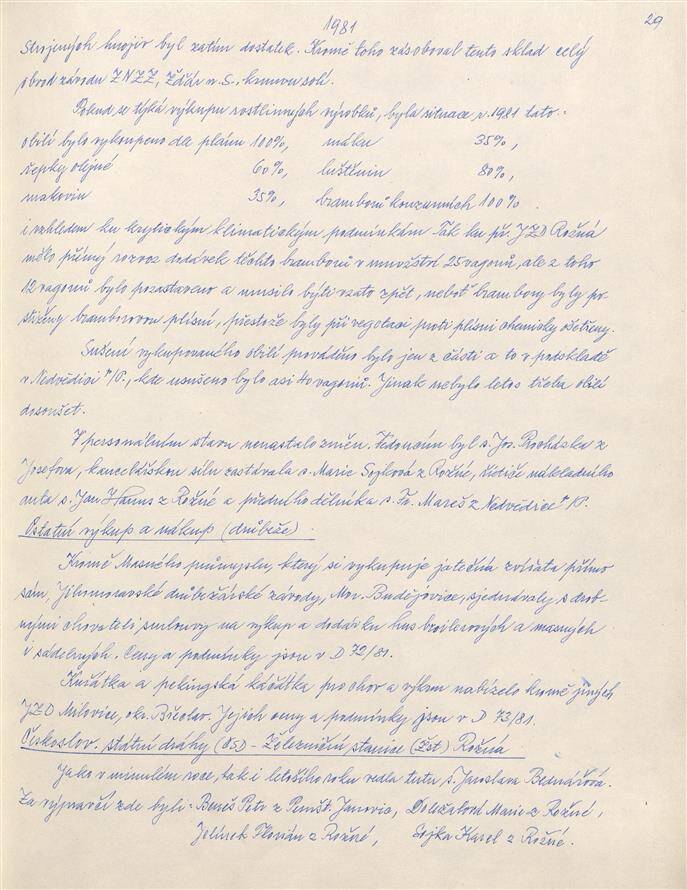 1981
29
Strojených hnojiv byl zatím dostatek. Kromě toho zásoboval tento sklad celý
obvod závodu ZNZZ, Žďár n. S. krmnou solí.
Pokud se týká výkupu rostlinných výrobků, byla situace v r. 1981 tato:
obilí bylo vykoupeno dle plánu 100%, máku 35%,
řepky olejné 60%, luštěnin 80%,
makovin 35%, bramborů konzumních 100%
i vzhledem ku krytickým klimatickým podmínkám. Tak ku př. JZD Rožná
mělo přímý rozvoz dodávek těchto bramborů v množství 25 vagonů, ale z toho
12 vagonů bylo pozastaveno a musilo býti vzato zpět, neboť brambory byly po-
stiženy bramborovou plísní, přestože byly při vegetaci proti plísni chemicky ošetřeny.
Sušení vykupovaného obilí prováděno bylo jen z části a to v podskladě
v Nedvědici n/P., kde usušeno bylo asi 40 vagonů. Jinak nebylo letos třeba obilí
dosoušet.
V personálním stavu nenastalo změn. Vedoucím byl s. Jos. Procházka z
Josefova, kancelářskou sílu zastávala s. Marie Sojková z Rožné, řidiče nákladního
auta s. Jan Hanus z Rožné a předního dělníka s. Fr. Mareš z Nedvědice n/P.
Ostatní výkup a nákup (drůbeže).
Kromě Masného průmyslu, který si vykupuje jatečná zvířata přímo
sám, Jihomoravské drůbežářské závody, Mor. Budějovice, sjednávaly s drob-
nými chovateli smlouvy na výkup a dodávku hus broilerových a masných
i sádelných. Ceny a podmínky jsou v D 72/81.
Kuřátka a pekingská káčátka pro chov a výkrm nabízelo kromě jiných
JZD Milovice, okr. Břeclav. Jejich ceny a podmínky jsou v D 73/81.
Českoslov. státní dráhy (ČSD) - Železniční stanice (Žst) Rožná
Jako v minulém roce, tak i letošího roku vedla tuto s. Jaroslava Bednářová.
Za výpravčí zde byli: Beneš Petr z Pernšt. Janovic, Doležalová Marie z Rožné,
Jelínek Florián z Rožné, Sojka Karel z Rožné.